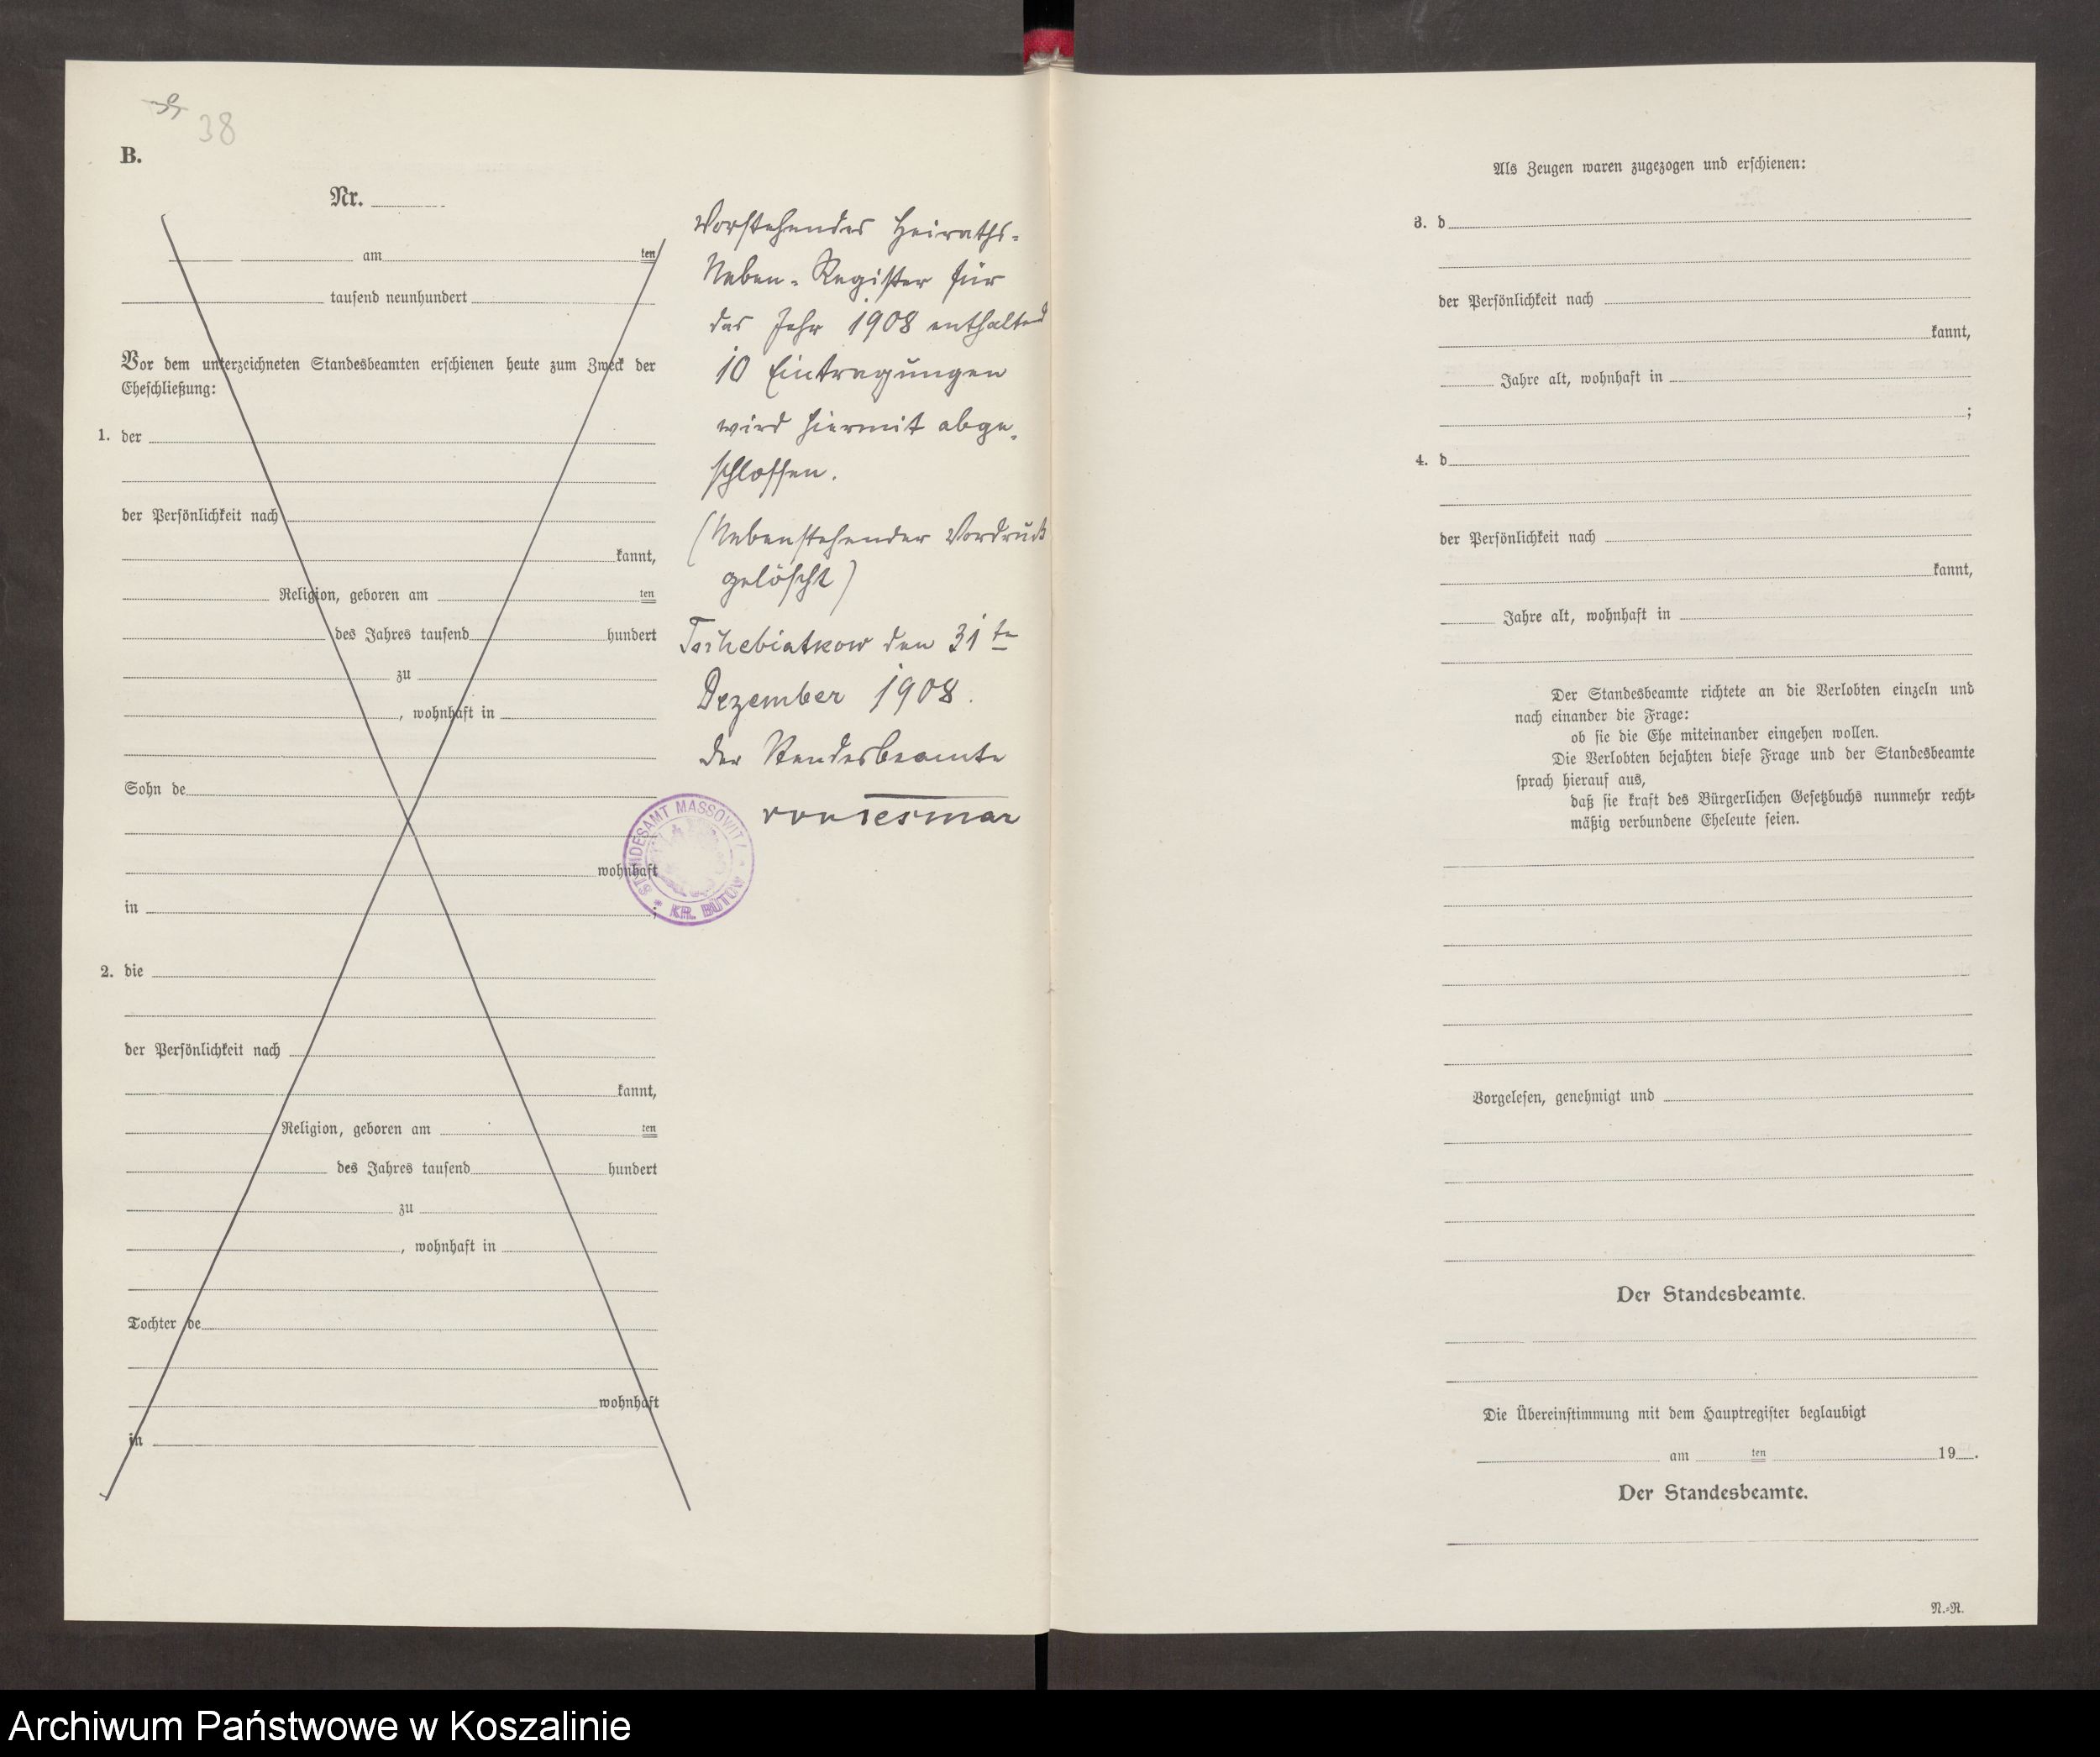 38
B.
Nr.
am ten
tausend neunhundert
Vor dem unterzeichneten Standesbeamten erschienen heute zum Zweck der
Eheschließung:
1. der
der Persönlichkeit nach
kannt,
Religion, geboren am ten
des Jahres tausend hundert
zu
, wohnhaft in
Sohn de
wohnhaft
in ;
2. die
der Persönlichkeit nach
kannt,
Religion, geboren am ten
des Jahres tausend hundert
zu
, wohnhaft in
Tochter de
wohnhaft
in
Vorstehendes Heiraths-
Neben-Register für
das Jahr 1908 enthaltend
10 Eintragungen
wird hiermit abge-
schlossen.
(Nebenstehender Vordruck
gelöscht)
Tschebiatkow den 31te
Dezember 1908.
Der Standesbeamte
von Tesmar
STANDESAMT MASSOWITZ
* KR. BÜTOW
Als Zeugen waren zugezogen und erschienen:
3. d
der Persönlichkeit nach
kannt,
Jahre alt, wohnhaft in
;
4. d
der Persönlichkeit nach
kannt,
Jahre alt, wohnhaft in
Der Standesbeamte richtete an die Verlobten einzeln und
nach einander die Frage:
ob sie die Ehe miteinander eingehen wollen.
Die Verlobten bejahten diese Frage und der Standesbeamte
sprach hierauf aus,
daß sie kraft des Bürgerlichen Gesetzbuchs nunmehr recht-
mäßig verbundene Eheleute seien.
Vorgelesen, genehmigt und
Der Standesbeamte.
Die Übereinstimmung mit dem Hauptregister beglaubigt
am ten 19 .
Der Standesbeamte.
N.-R.
Archiwum Państwowe w Koszalinie